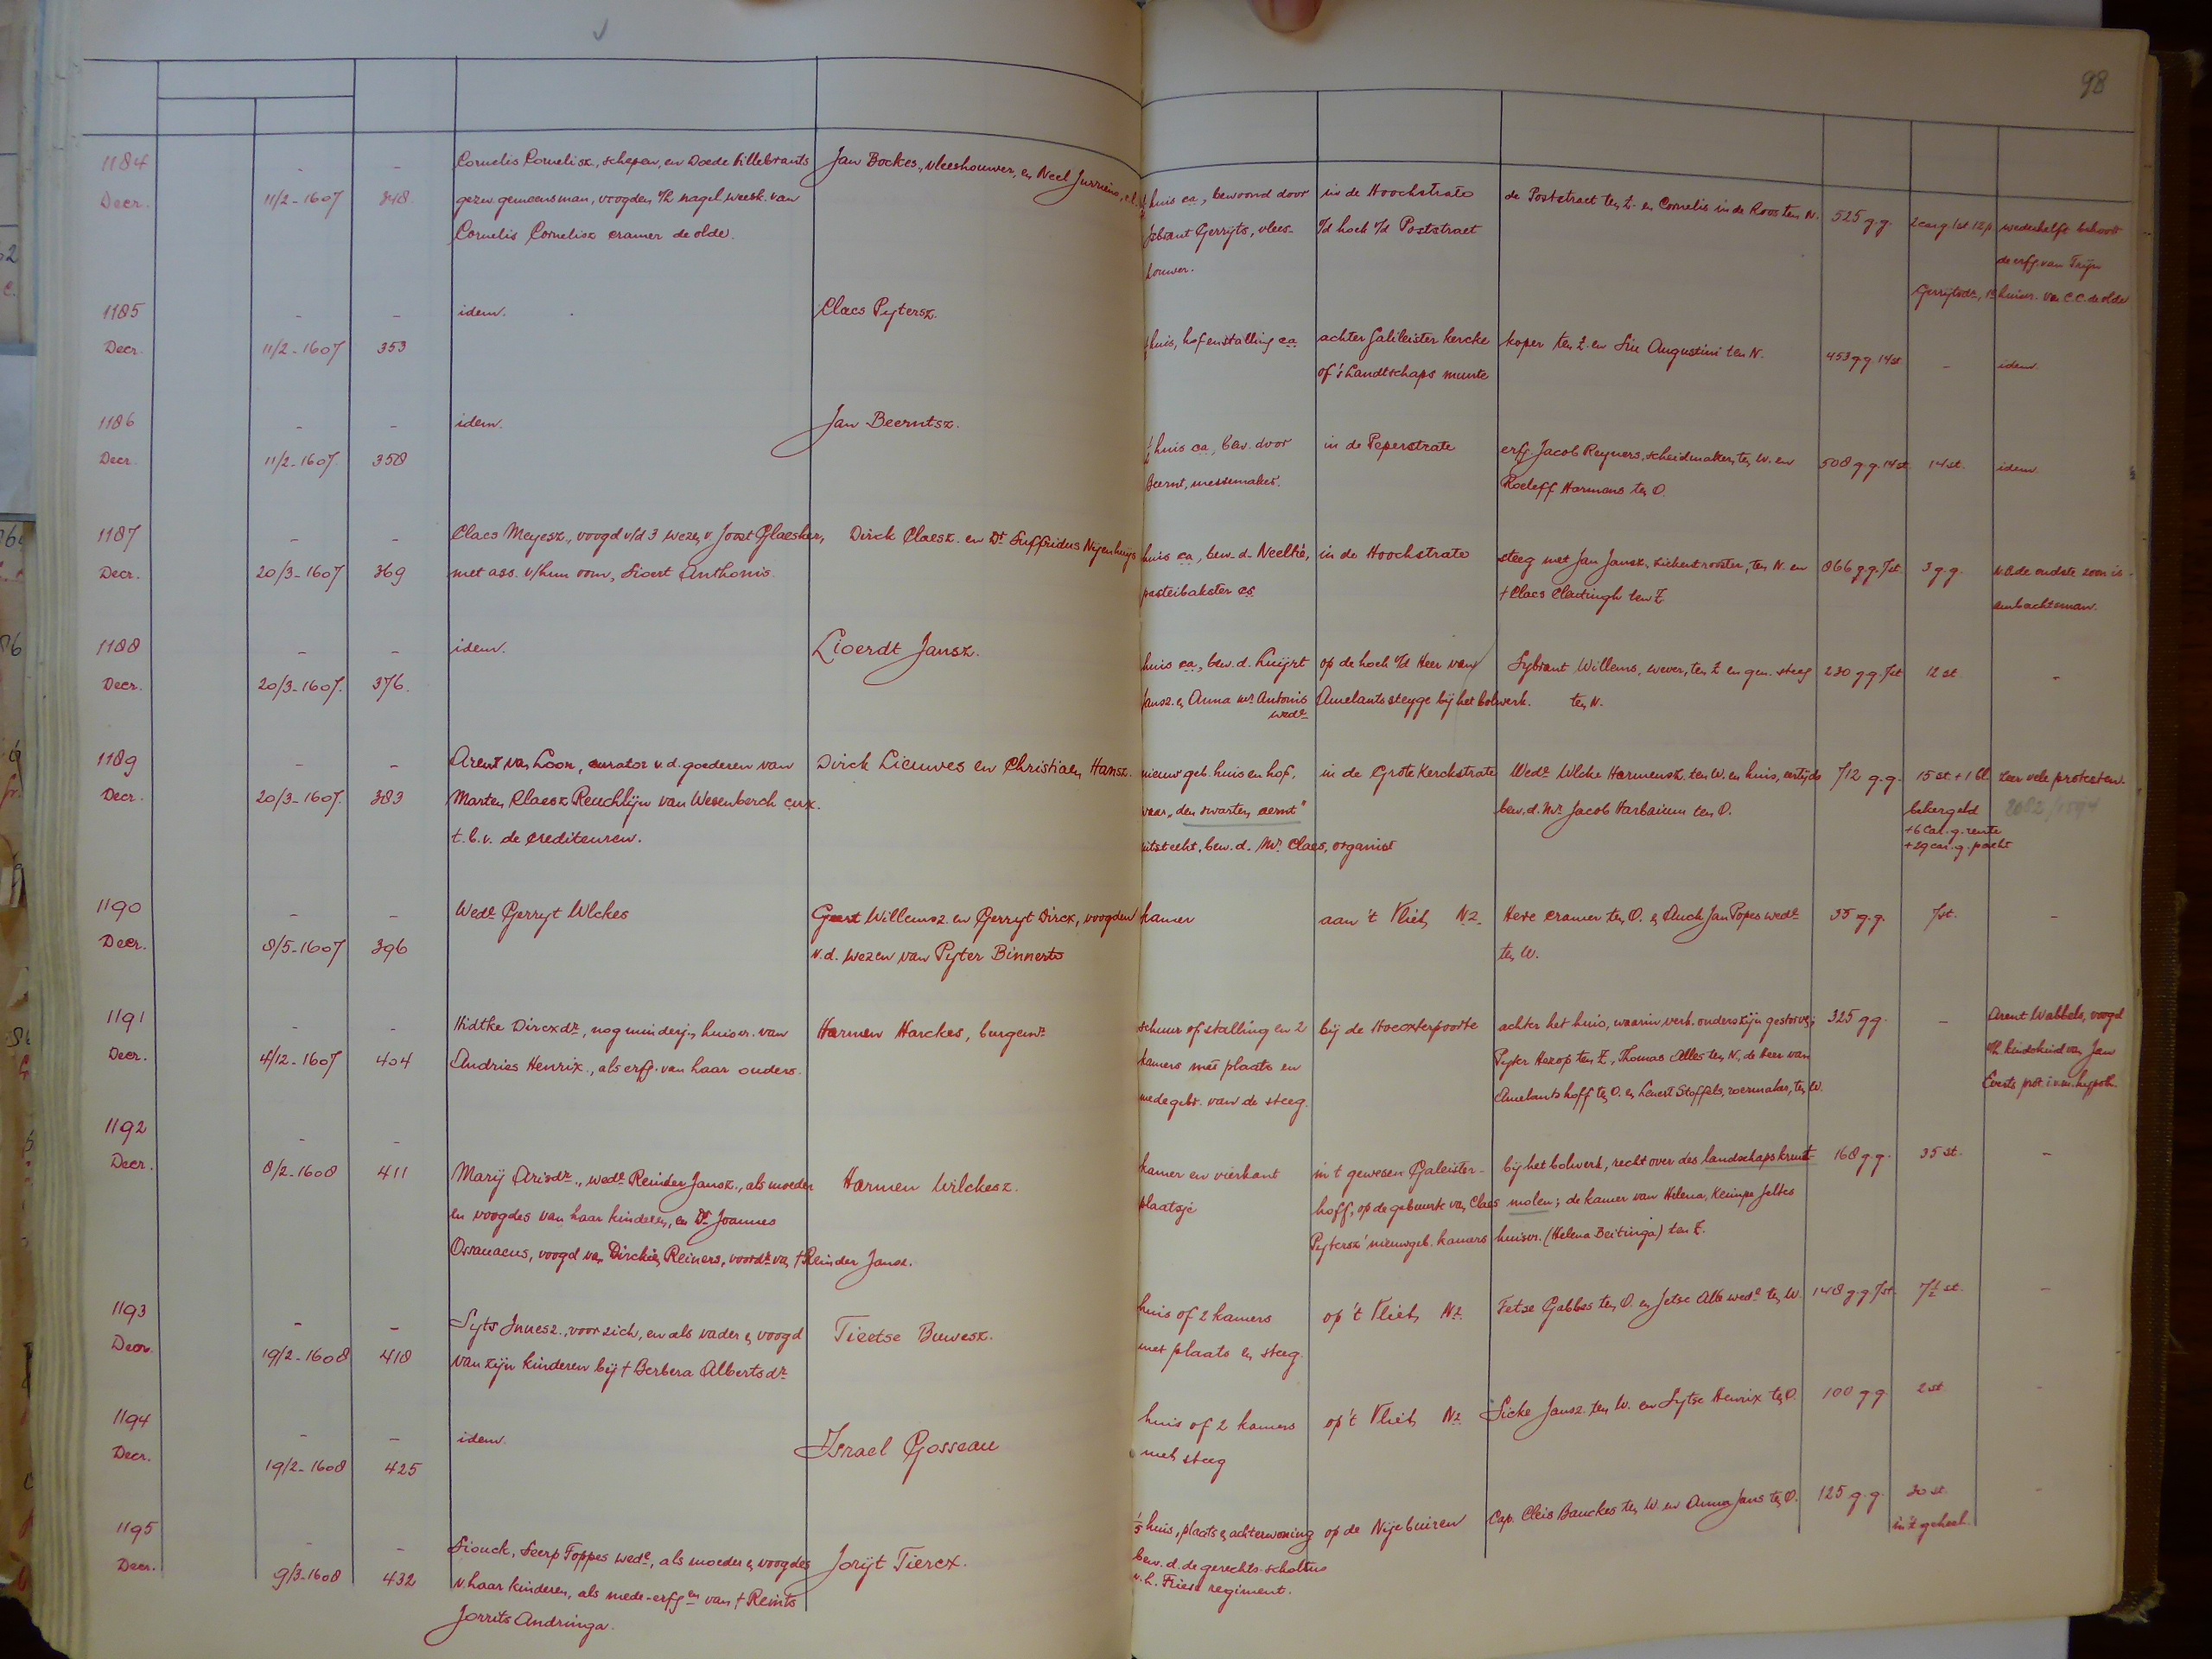 98
1184 - - Cornelis Cornelisz., schepen, en Doede Hillebrants Jan Bockes, vleeshouwer, en Neel Jurriens, e.l. huis ca, bewoond door in de Hoochstrate de Poststraet ten Z. en Cornelis in de Roos ten N. 525 g.g. 2 car.g. 1 st. 12 p wederhelft behoort
Decr. 11/2-1607 348 gezw. gemeensman, voogden o/h nagel. weesk. van IJsbrant Gerryts, vlees- o/d hoek v/d Poststraet de erfg. van Trijn
Cornelis Cornelisz cramer de olde. houwer. Gerrijtsdr, 1e huisvr. van C.C. de olde
1185 - - idem. Claes Pytersz. huis, hof en stalling ca achter Galileister kercke koper ten Z. en Siu Augustini ten N. 453 g.g. 14 st. - idem.
Decr. 11/2-1607 353 of 's Landtschaps munte
1186 - - idem. Jan Beerntsz. ½ huis ca, bew. door in de Peperstrate erfg. Jacob Reyners, scheidmaker, ten W. en 508 g.g. 14 st. 14 st. idem.
Decr. 11/2-1607 358 Beernt, messemaker. Roeleff Harmens ten O.
1187 - - Claes Meyesz., voogd v/d 3 wezen v. Joost Glaesker, Dirck Claesz. en Dr Suffridus Nijenhuijs huis ca, bew. d. Neeltie, in de Hoochstrate steeg met Jan Jansz, ziekentrooster, ten N. en 866 g.g. 7 st. 3 g.g. N.B. de oudste zoon is
Decr. 20/3-1607 369 met ass. v/hun oom, Sioert Anthonis. pasteibakster ca † Claes Cleutingh ten Z. ambachtsman.
1188 - - idem. Lioerdt Jansz. huis ca, bew. d. Luijrt op de hoek v/d Heer van Sybrant Willems, wever, ten Z. en gen. steeg 230 g.g. 7 st. 12 st. -
Decr. 20/3-1607. 376. Jansz. en Anna Mr Antonis wede Amelants steyge bij het bolwerk. ten N.
1189 - - Arent van Loon, curator v.d. goederen van Dirck Lieuwes en Christiaen Hansz. nieuw geb. huis en hof, in de Grote Kerckstrate Wede Wlcke Harmensz. ten W. en huis, eertijds 712 g.g. 15 st. + 1 bl. zeer vele protesten.
Decr. 20/3-1607. 383 Marten Claesz Reuchlijn van Wesenberch cux. waar „den swarten aernt" bew. d. Mr Jacob Harbainus ten O. bekergeld
t.b.v. de crediteuren. uitsteekt, bew. d. Mr Claes, organist + 6 Car. g. rente
+ 29 car. g. pacht
1190 - - Wede Gerryt Wlckes Geert Willemsz. en Gerryt Dirck, voogden kamer aan 't Vliet NZ Here cramer ten O. en Auck Jan Popes wede 35 g.g. 7 st. -
Decr. 8/5-1607 396 v.d. wezen van Pyter Binnerts ten W.
1191 - - Hidtke Dircxdr, nog minderj., huisvr. van Harmen Harckes, burgemr schuur of stalling en 2 bij de Hoecxterpoorte achter het huis, waarin verk. ouders zijn gestorven, 325 g.g. - Arent Wabbels, voogd
Decr. 4/12-1607 404 Andries Henrix., als erfg. van haar ouders. kamers met plaats en Pyter Herop ten Z., Thomas Alles ten N., de heer van o/h kindskind van Jan
medegebr. van de steeg. Amelants hoff ten O. en Lenert Stoffels, roermaker, ten W. Everts prot. i.v.m. hypoth.
1192 - - Marij Arisdr., wede Reinder Jansz., als moeder Harmen Wilckesz. kamer en vierkant in 't gewesen Galeister- bij het bolwerk, recht over des landschaps kruit- 168 g.g. 35 st. -
Decr. 8/2-1608 411 en voogdes van haar kinderen, en Dr Joannes plaatsje hoff, op de gebuurte van Claes molen; de kamer van Helena, Kempe Jeltes
Ossanaeus, voogd van Dirckien Reiners, voordr van † Reinder Jansz. Pytersz' nieuwgeb. kamers huisvr. (Helena Beitinga) ten Z.
1193 - - Syts Innesz., voor zich, en als vader en voogd Tieetse Buwesz. huis of 2 kamers op 't Vliet NZ. Tetse Gabbes ten O. en Jetse Alb wede ten W. 148 g.g. 7 st. 7½ st. -
Decr. 19/2-1608 418 van zijn kinderen bij † Berbera Albertsdr met plaats en steeg.
1194 - - idem. Israel Gosseau huis of 2 kamers op 't Vliet NZ. Sicke Jansz. ten W. en Sytse Henrix ten O. 100 g.g. 2 st. -
Decr. 19/2-1608 425 met steeg
1195 - - Siouck, Seerp Toppes wede, als moeder en voogdes Jorijt Tiercx. ⅓ huis, plaats en achterwoning op de Nijebuiren Cap. Cleis Banckes ten W. en Anna Jans ten O. 125 g.g. 30 st. -
Decr. 9/3-1608 432 v. haar kinderen, als mede-erfgen van † Reints bew. d. de gerechts-scholtus in 't geheel.
Jorrits Andringa. v.h. Friese regiment.